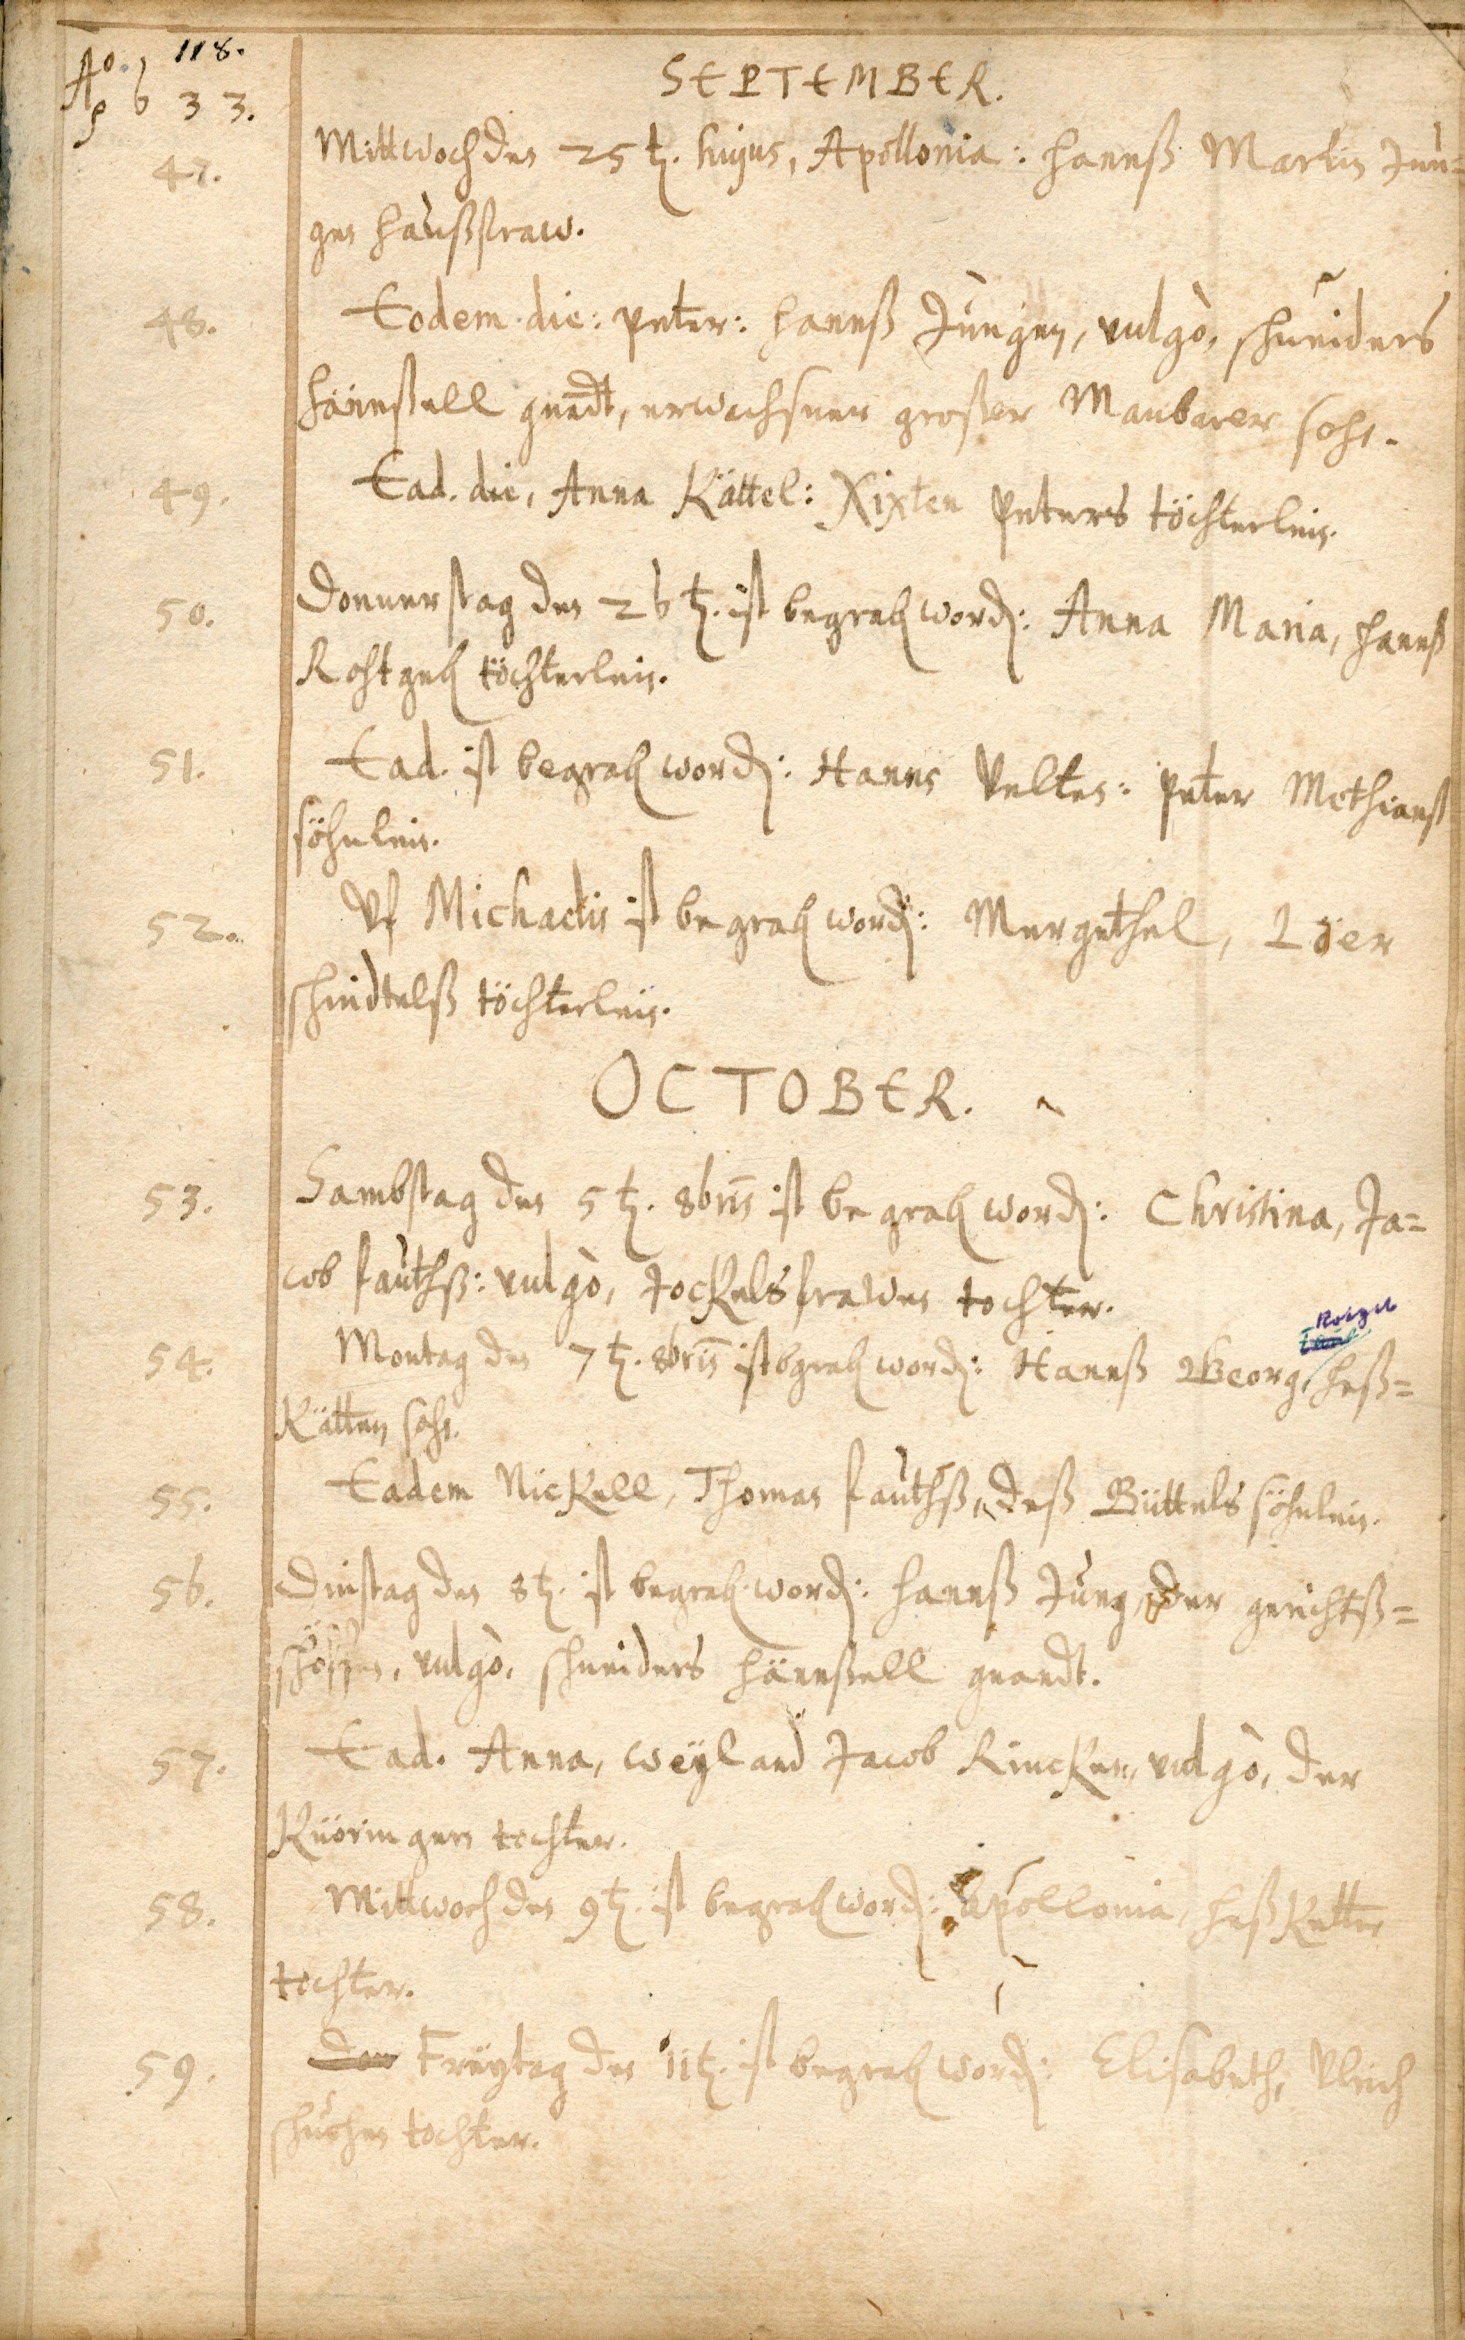 118.
Ao.
1633.
SEPTEMBER.
47. Mittwoch den 25t. hujus, Apollonia: Hannß Martin Jun=
gen Haußfraw.
48. Eodem die: Peter: Hannß Jungen, vulgò, Schneiders
Hännßell gnedt, erwachsner großer Manbarer sohn.
49. Ead. die, Anna Kättel: Xixten Peters töchterlein.
50. Donnerstag den 26t. ist begrab word: Anna Maria, Hannß
Rohtgeb töchterlein.
51. Ead. ist begrab word: Hanns Velten: Peter Methianß
söhnlein.
52. Vf Michaelis ist begrab word: Mergethel,
Schindtelß töchterlein.
OCTOBER.
53. Sambstag den 5t. 8bris ist begrab word: Christina, Ja=
cob Fauthß: vulgò, Jockelsfrawen tochter.
54. Montag den 7t. 8bris ist bgrab word: Hannß Georg, Heß=
Kätten sohn.
55. Eadem Nickell, Thomas Fauthß, deß Büttels söhnlein.
56. Dinstag den 8t. ist begrab word: Hannß Jung, der gerichtß=
schöffen, vulgò, Schneiders Hännßell gnandt.
57. Ead. Anna, weÿland Jacob Rincken, vulgò, der
tochter.
58. Mittwoch den 9t. ist begrab word: Apollonia, Heß Ketten
tochter.
59. Freÿtag den 11t. ist begrab word: Elisabeth, Vlrich
Schuchen tochter.